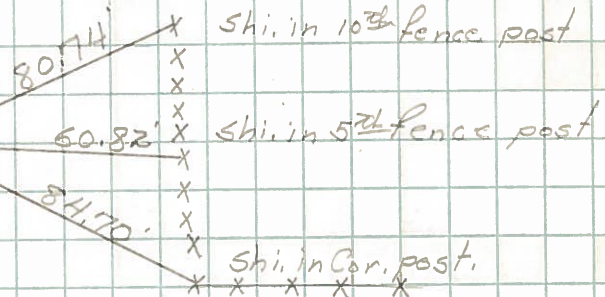 80.74' Shi. in 10th fence post
60.82' Shi. in 5th fence post
84.70' Shi. in Cor. post.